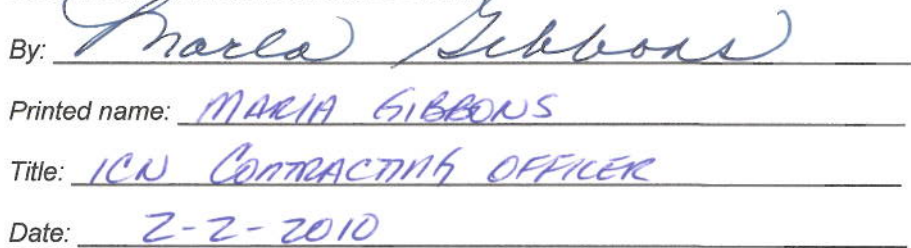 By: Marla Gibbons
Printed name: MARIA GIBBONS
Title: ICN CONTRACTING OFFICER
Date: 2-2-2010